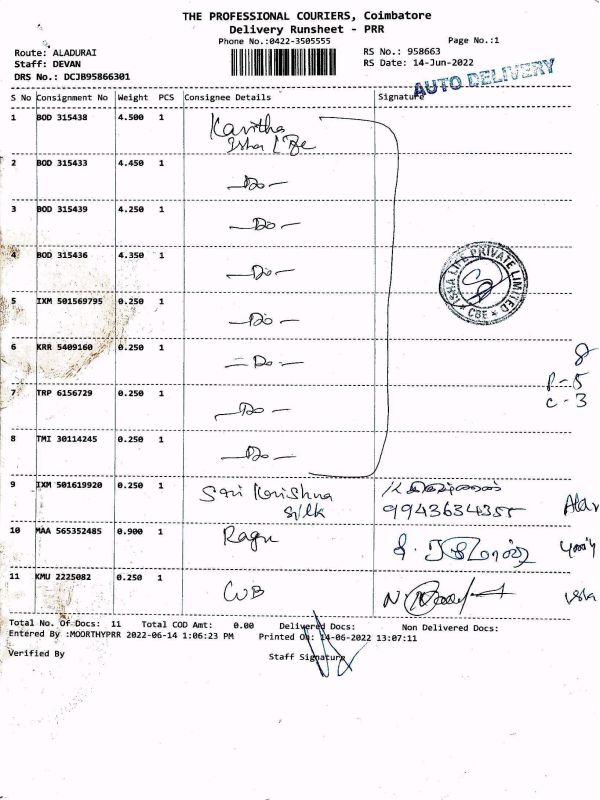 THE PROFESSIONAL COURIERS, Coimbatore
Delivery Runsheet - PRR
Phone No.:0422-3505555
Page No.:1
Route: ALADURAI
Staff: DEVAN
DRS No.: DCJB95866301
RS No.: 958663
RS Date: 14-Jun-2022
AUTO DELIVERY
S No Consignment No Weight PCS Consignee Details Signature
1 BOD 315438 4.500 1 Kavitha
Isha Life
2 BOD 315433 4.450 1 -Do-
3 BOD 315439 4.250 1 -Do-
4 BOD 315436 4.350 1 -Do-
ISHA LIFE PRIVATE LIMITED
* CBE *
5 IXM 501569795 0.250 1 -Do-
6 KRR 5409160 0.250 1 -Do-
8
P-5
C-3
7 TRP 6156729 0.250 1 -Do-
8 TMI 30114245 0.250 1 -Do-
9 IXM 501619920 0.250 1 Sari Krishna
silk
9943634355
10 MAA 565352485 0.900 1 Ragu
11 KMU 2225082 0.250 1 CUB
Total No. Of Docs: 11 Total COD Amt: 0.00 Delivered Docs: Non Delivered Docs:
Entered By :MOORTHYPRR 2022-06-14 1:06:23 PM Printed On: 14-06-2022 13:07:11
Verified By Staff Signature